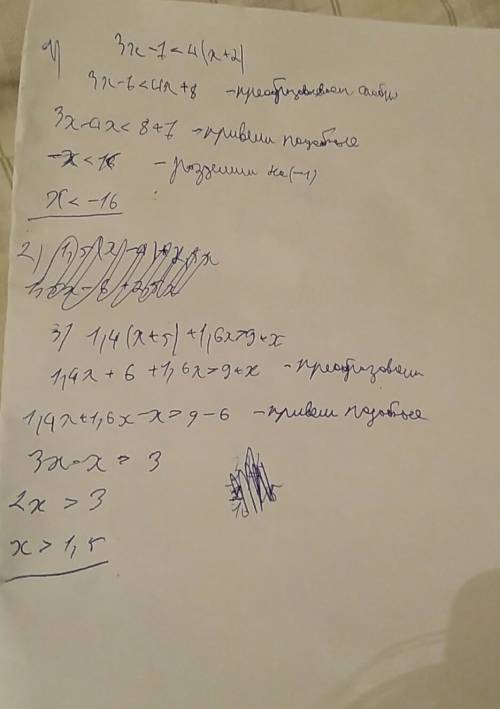 1) 3x-7<4(x+2)
3x-7<4x+8 -преобразовываем скобки
3x-4x<8+7 -привели подобные
-x<1 - разделили на(-1)
x<-16
2) 1,5(x-4)
3) 1,4(x+5)+1,6x>9+x
1,4x+6+1,6x>9+x -преобразовали
1,4x+1,6x-x>9-6 -привели подобные
3x-x>3
2x>3
x>1,5